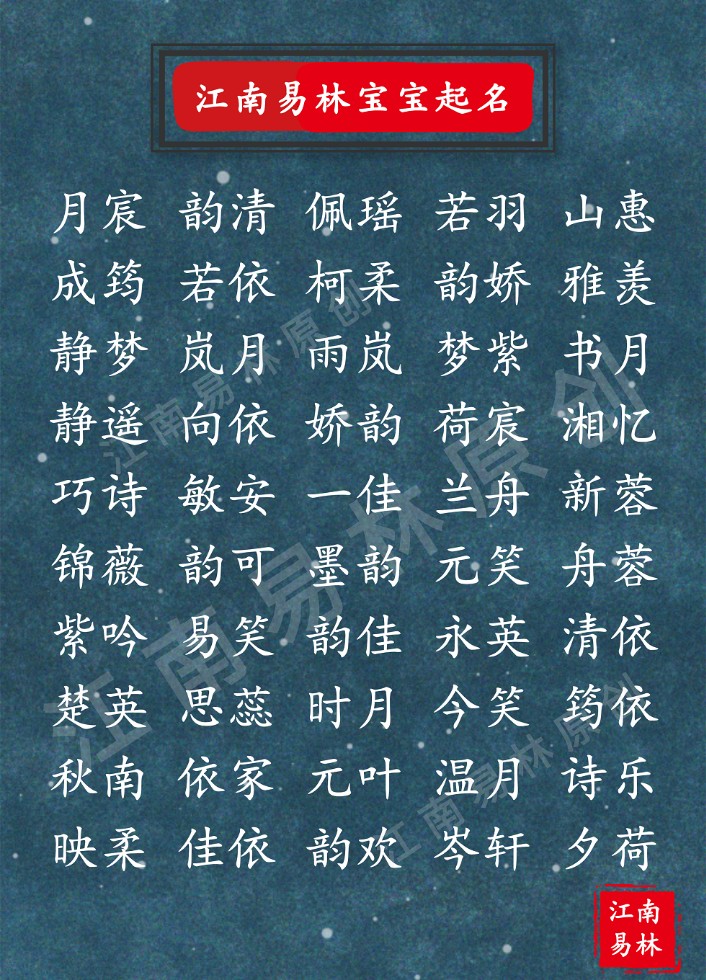 江南易林宝宝起名
月宸 韵清 佩瑶 若羽 山惠
成筠 若依 柯柔 韵娇 雅羡
静梦 岚月 雨岚 梦紫 书月
静遥 向依 娇韵 荷宸 湘忆
巧诗 敏安 一佳 兰舟 新蓉
锦薇 韵可 墨韵 元笑 舟蓉
紫吟 易笑 韵佳 永英 清依
楚英 思蕊 时月 今笑 筠依
秋南 依家 元叶 温月 诗乐
映柔 佳依 韵欢 岑轩 夕荷
江南易林原创
江南易林原创
江南易林原创
江南
易林